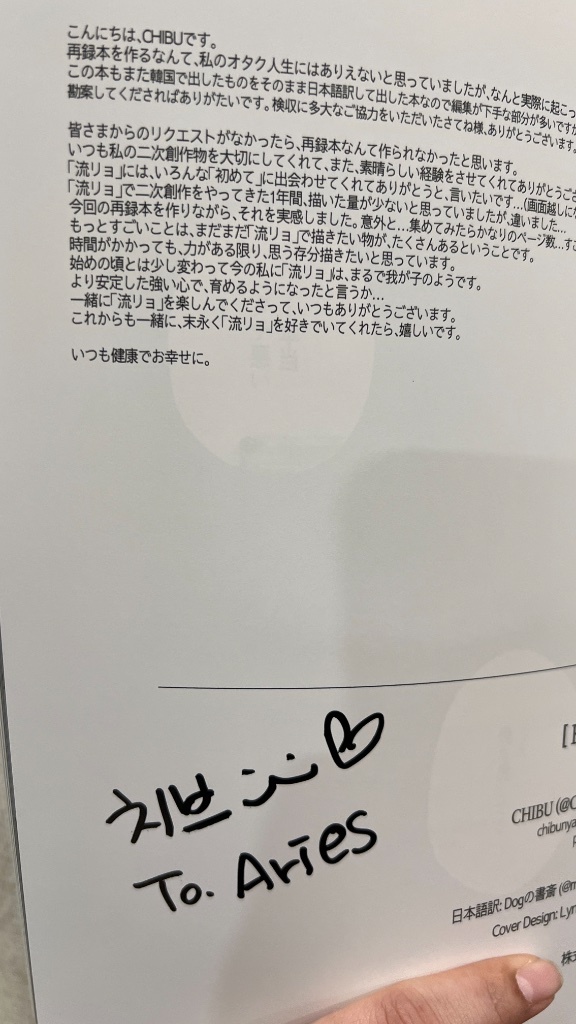 こんにちは、CHIBUです。
再録本を作るなんて、私のオタク人生にはありえないと思っていましたが、なんと実際に起こっ
この本もまた韓国で出したものをそのまま日本語訳して出した本なので編集が下手な部分が多いですが
勘案してくださればありがたいです。検収に多大なご協力をいただいたさてね様、ありがとうございます。
皆さまからのリクエストがなかったら、再録本なんて作られなかったと思います。
いつも私の二次創作物を大切にしてくれて、また、素晴らしい経験をさせてくれてありがとうござ
「流リョ」には、いろんな「初めて」に出会わせてくれてありがとうと、言いたいです…(画面越しに
「流リョ」で二次創作をやってきた1年間、描いた量が少ないと思っていましたが、違いました…
今回の再録本を作りながら、それを実感しました。意外と…集めてみたらかなりのページ数…す
もっとすごいことは、まだまだ「流リョ」で描きたい物が、たくさんあるということです。
時間がかかっても、力がある限り、思う存分描きたいと思っています。
始めの頃とは少し変わって今の私に「流リョ」は、まるで我が子のようです。
より安定した強い心で、育めるようになったと言うか…
一緒に「流リョ」を楽しんでくださって、いつもありがとうございます。
これからも一緒に、末永く「流リョ」を好きでいてくれたら、嬉しいです。
いつも健康でお幸せに。
치브
To. Aries
[
CHIBU (@C
chibunya
日本語訳: Dogの書斎 (@m
Cover Design: Lyn
株式